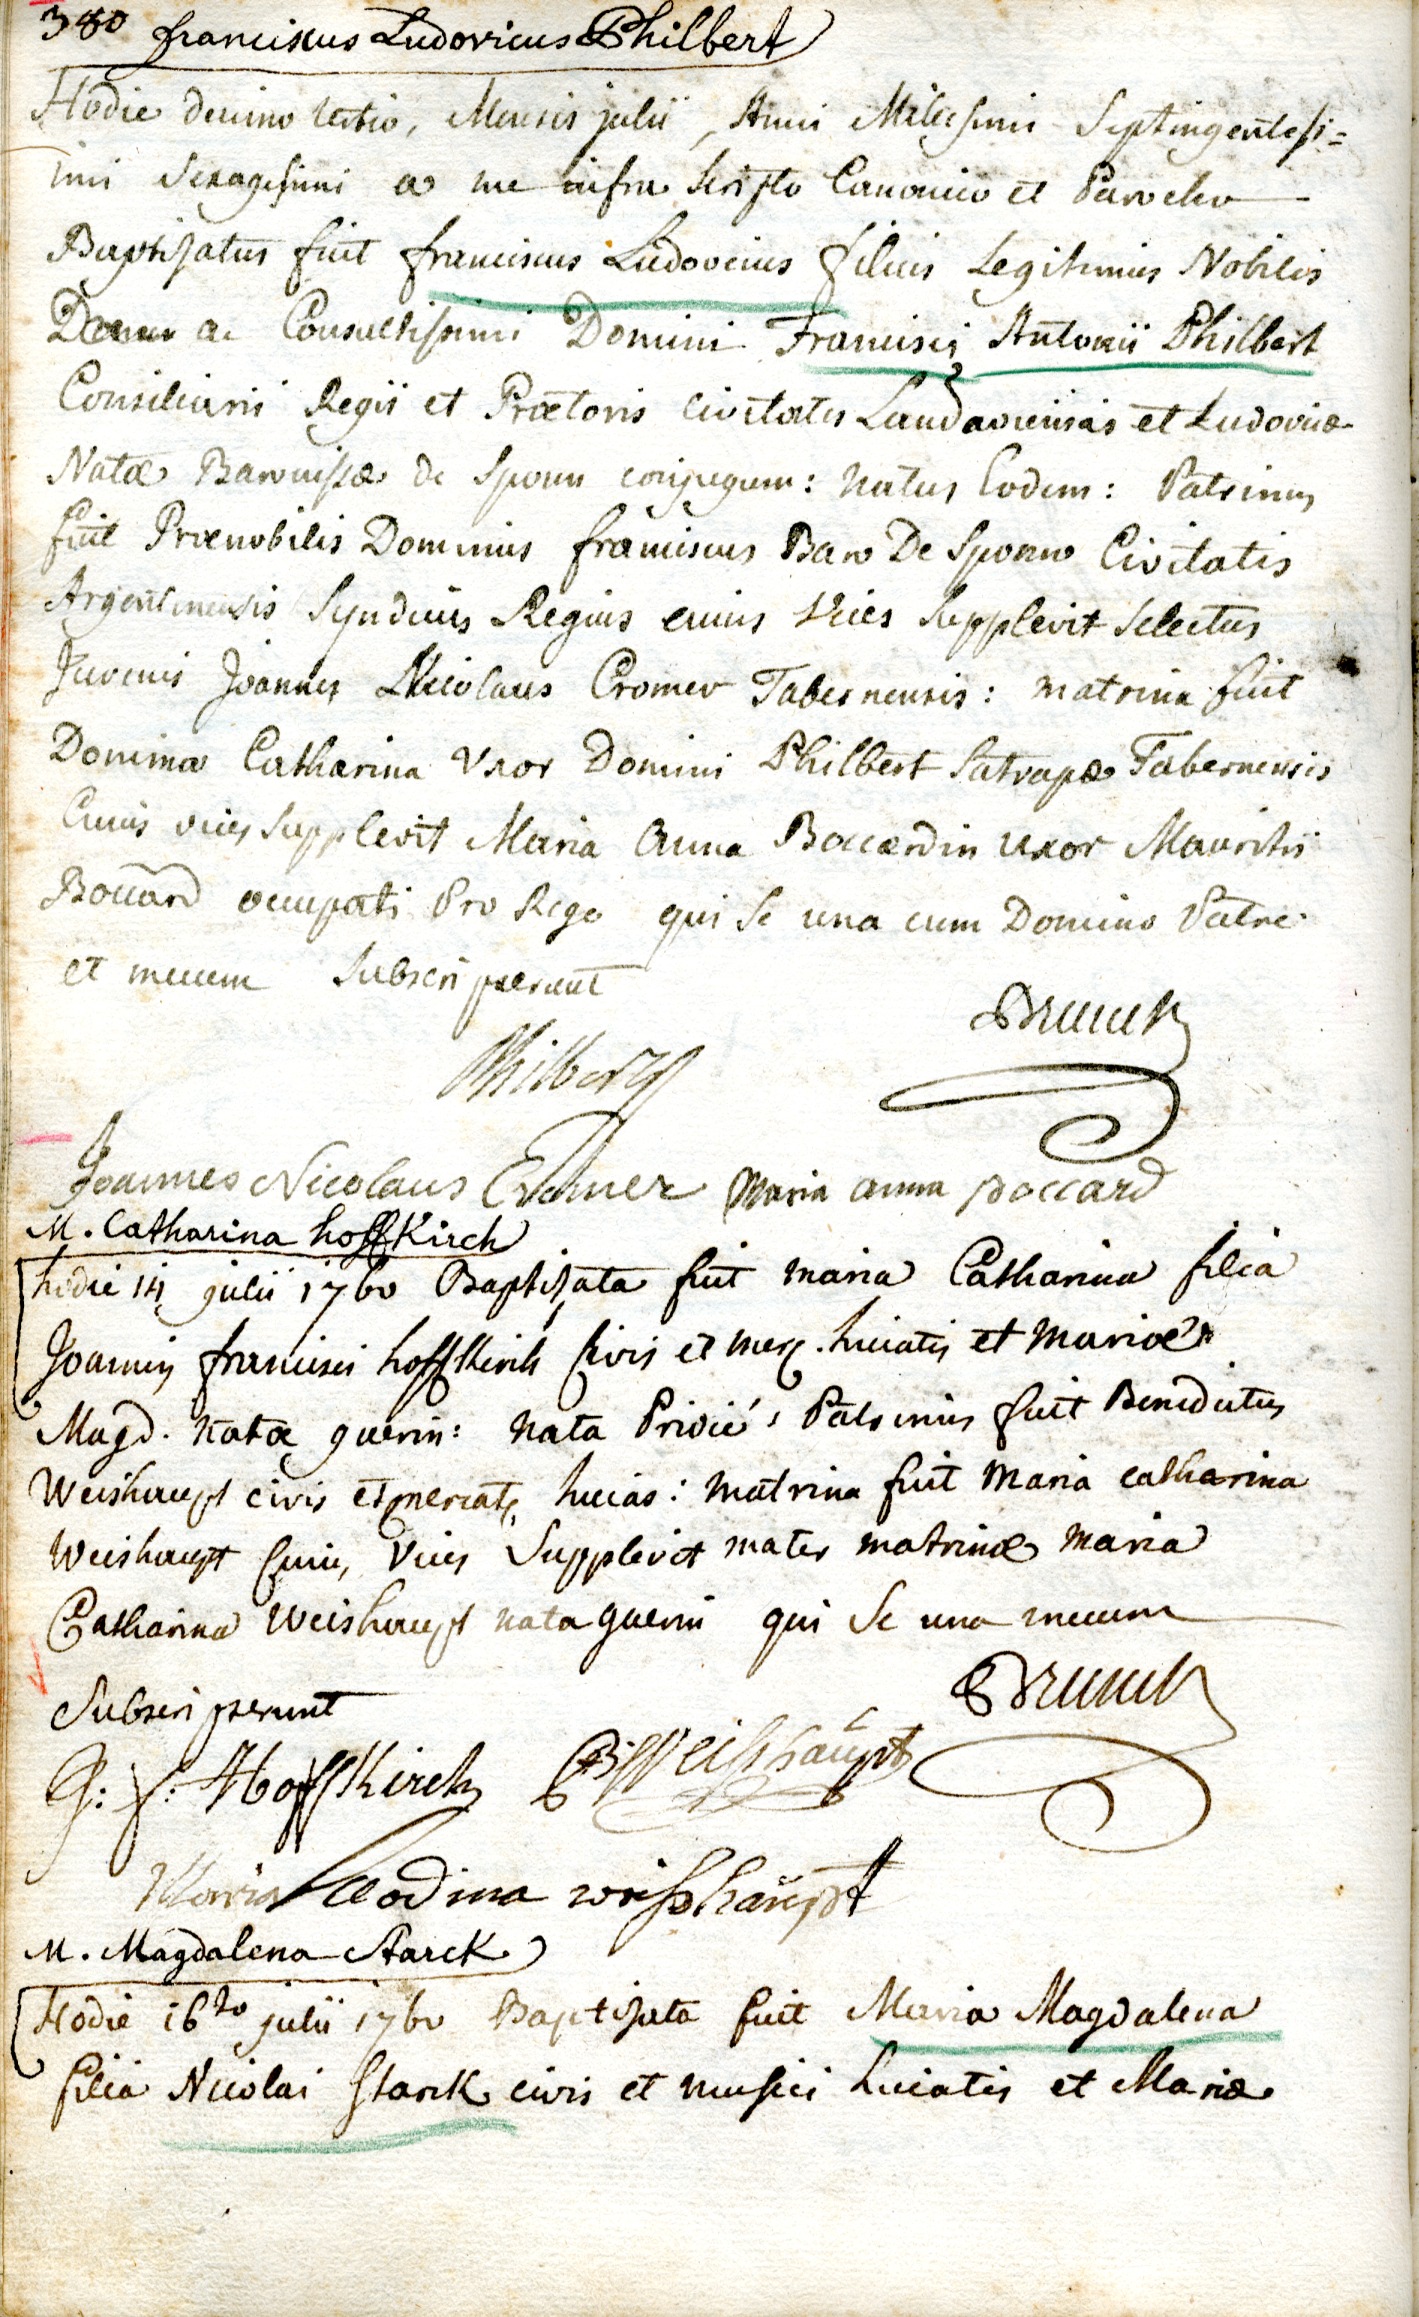 380 franciscus Ludovicus Philbert
Hodie decimo tertio, Mensis julii, Anni Millesimi Septingentesi=
mi Sexagesimi a me infra Scripto Canonico et Parocho
Baptisatus fuit franciscus Ludovicus filius Legitimus Nobilis
ac Consultissimi Domini Francisci Antonii Philbert
Consiliarii Regii et Prætoris Civitatis Landaviensis et Ludovicæ
Natæ Baronissæ de Sponn conjugum: natus Eodem: Patrinus
fuit Prænobilis Dominus franciscus Baro De Sponn Civitatis
Argentinensis Syndicus Regius cuius Vices Supplevit Selectus
Juvenis Joannes Nicolaus Cromer Tabernensis: matrina fuit
Domina Catharina Uxor Domini Philbert Satrapæ Tabernensis
Cuius vices Supplevit Maria Anna Boccardin uxor Mauritii
Boccard occupati Pro Rege qui Se una cum Domino Patre
et mecum Subscripserunt
Brunck
Philbert
Joannes Nicolaus Cromer Maria anna Boccard
M. Catharina hoffKirch
hodie 14 julii 1760 Baptisata fuit maria Catharina filia
Joannis francisci hoffKirch Civis et merc. huiatis et mariæ
Magd. natæ guerin: nata Pridie: Patrinus fuit Benedictus
Weishaupt civis et mercat. huias: matrina fuit Maria catharina
Weishaupt Cuius Vices Supplevit mater matrinæ maria
Catharina Weishaupt nata guerin qui Se una mecum
Subscripserunt
Brunck
G: f: HoffKirch B Weisshaupt
Maria weisshaupt
M. Magdalena Starck
Hodie 16to julii 1760 Baptisata fuit Maria Magdalena
filia Nicolai Starck civis et musici huiatis et Mariæ